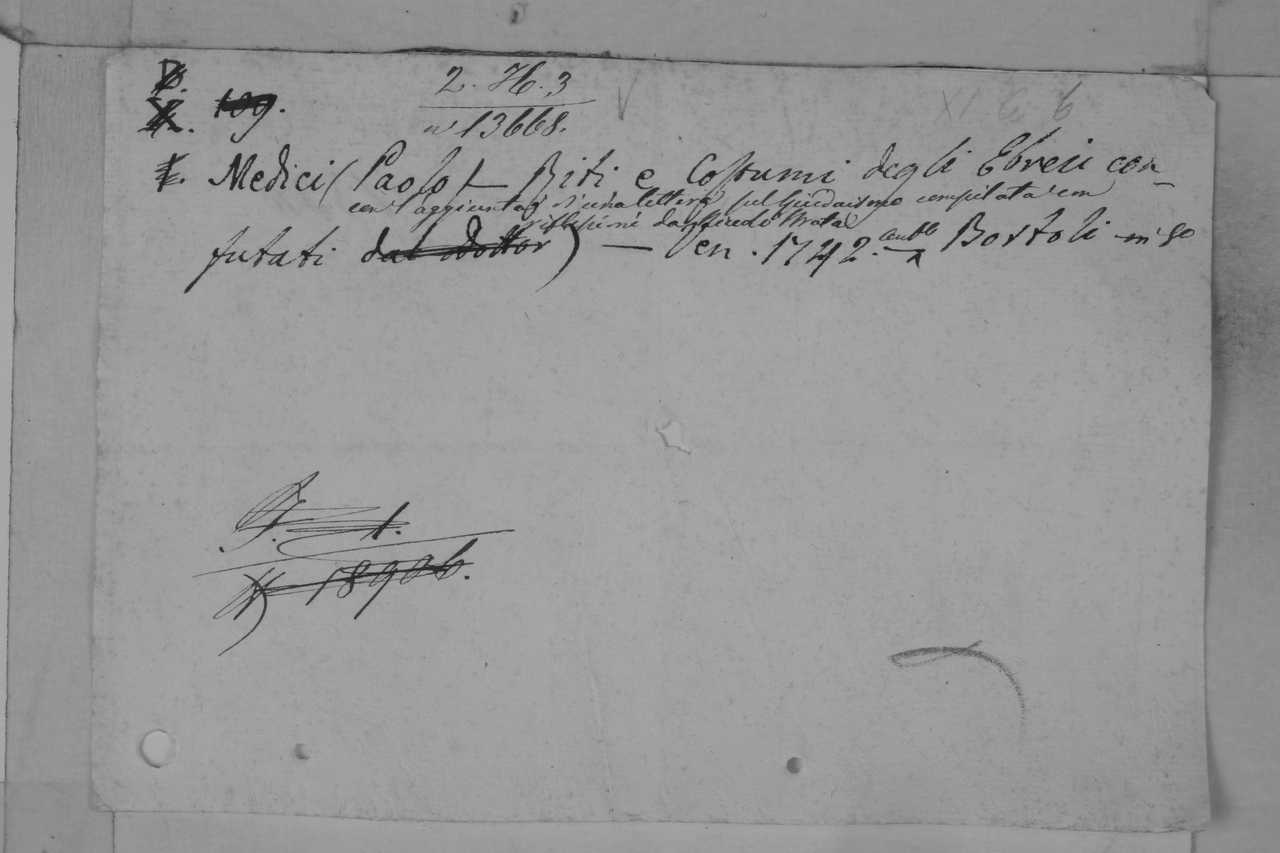 2. H. 3
109.
n 13668.
Medici (Paolo) — Riti e Costumi degli Ebrei con-
con l'aggiunta di una lettera sul Giudaismo compilata con
riflessioni da
futati dal Dottor ) — Ven. 1742. Bortoli in 8o
F. 1.
N 18906.